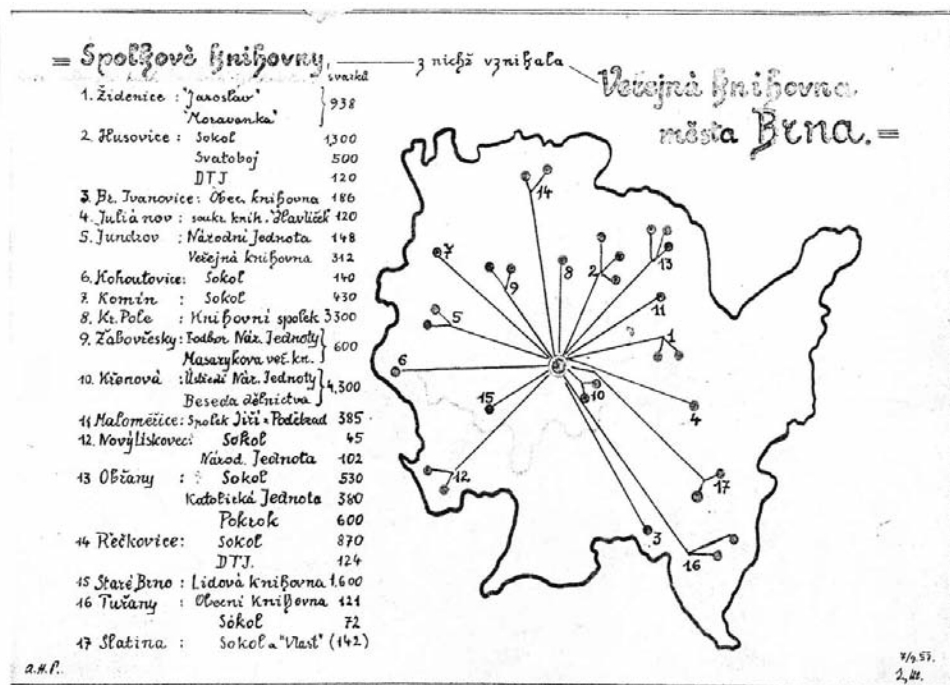 = Spolkové knihovny,
z nichž vznikala
Veřejná knihovna
města Brna. =
svazků
1. Židenice : "Jaroslav"
"Moravanka" } 938
2. Husovice : Sokol 1,300
Svatoboj 500
DTJ 120
3. Br. Ivanovice : Obec. knihovna 186
4. Juliánov : soukr. knih. Havlíček 120
5. Jundrov : Národní Jednota 148
Veřejná knihovna 312
6. Kohoutovice : Sokol 140
7. Komín : Sokol 430
8. Kr. Pole : Knihovní spolek 3300
9. Žabovřesky : Podbor Nár. Jednoty
Masarykova veř. kn. } 600
10. Křenová : Ústředí Nár. Jednoty
Beseda dělnictva } 4,300
11 Maloměřice : Spolek Jiří z Poděbrad 385
12. Nový Lískovec : Sokol 45
Národ. Jednota 102
13 Obřany : Sokol 530
Katolická Jednota 380
Pokrok 600
14 Řečkovice : Sokol 870
DTJ. 124
15 Staré Brno : Lidová knihovna 1.600
16 Tuřany : Obecní Knihovna 121
Sokol 72
17 Slatina : Sokol a "Vlast" (142)
14
7
9
8
2
13
11
5
1
6
10
15
4
12
17
3
16
a.H.P.